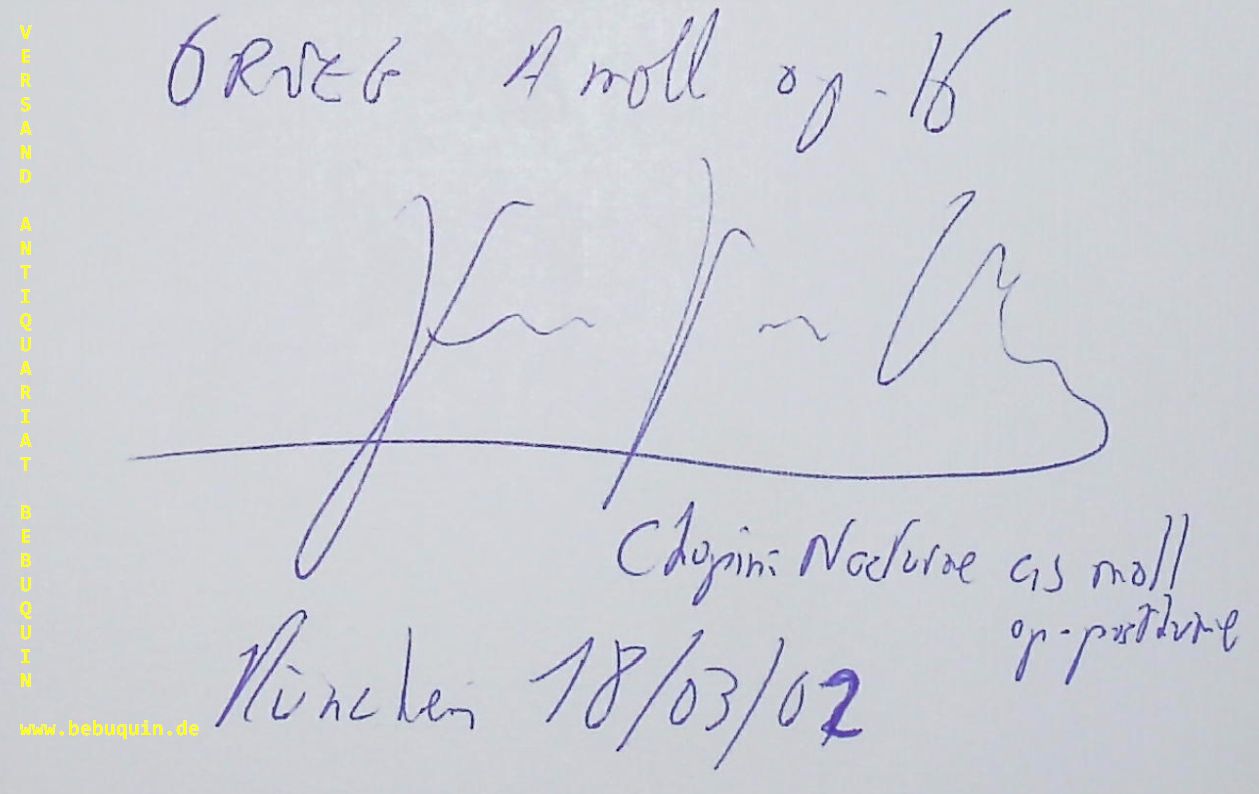 GRIEG A moll op. 16
Chopin: Nocturne cis moll
op. posthume
München 18/03/02
VERSAND ANTIQUARIAT BEBUQUIN
www.bebuquin.de